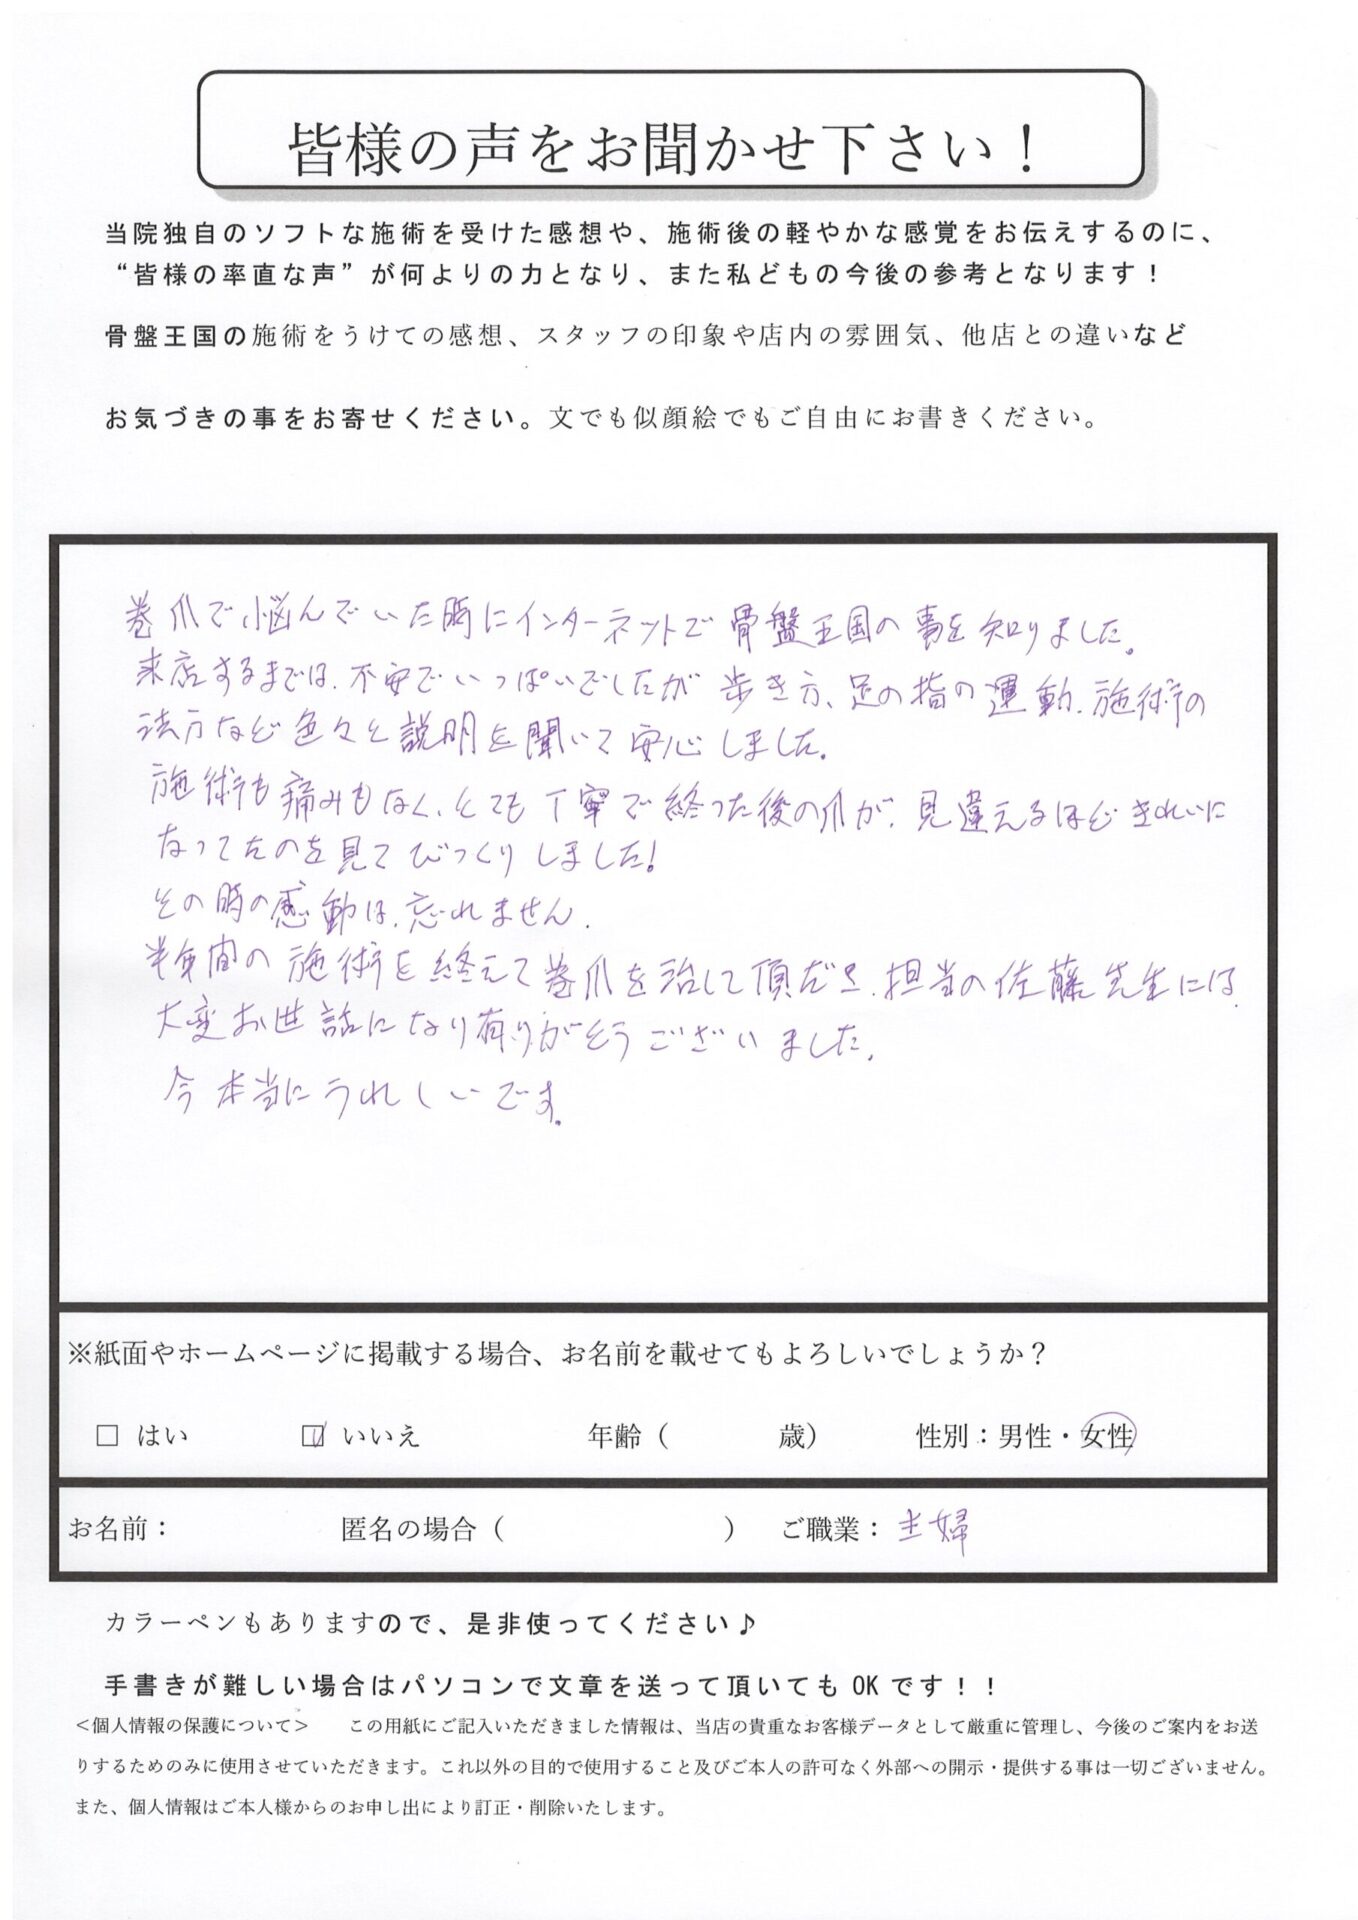 皆様の声をお聞かせ下さい！
当院独自のソフトな施術を受けた感想や、施術後の軽やかな感覚をお伝えするのに、
“皆様の率直な声”が何よりの力となり、また私どもの今後の参考となります！
骨盤王国の施術をうけての感想、スタッフの印象や店内の雰囲気、他店との違いなど
お気づきの事をお寄せください。文でも似顔絵でもご自由にお書きください。
巻爪で悩んでいた時にインターネットで骨盤王国の事を知りました。
来店するまでは、不安でいっぱいでしたが歩き方、足の指の運動、施術の
法方など色々と説明を聞いて安心しました。
施術も痛みもなく、とても丁寧で終った後の爪が、見違えるほどきれいに
なってたのを見てびっくりしました!
その時の感動は、忘れません。
半年間の施術を終えて巻爪を治して頂だき、担当の佐藤先生には、
大変お世話になり有りがとうございました。
今本当にうれしいです。
※紙面やホームページに掲載する場合、お名前を載せてもよろしいでしょうか？
□ はい ☑ いいえ 年齢（ 歳） 性別：男性・女性
お名前： 匿名の場合（ ） ご職業： 主婦
カラーペンもありますので、是非使ってください♪
手書きが難しい場合はパソコンで文章を送って頂いてもOKです！！
＜個人情報の保護について＞ この用紙にご記入いただきました情報は、当店の貴重なお客様データとして厳重に管理し、今後のご案内をお送
りするためのみに使用させていただきます。これ以外の目的で使用すること及びご本人の許可なく外部への開示・提供する事は一切ございません。
また、個人情報はご本人様からのお申し出により訂正・削除いたします。